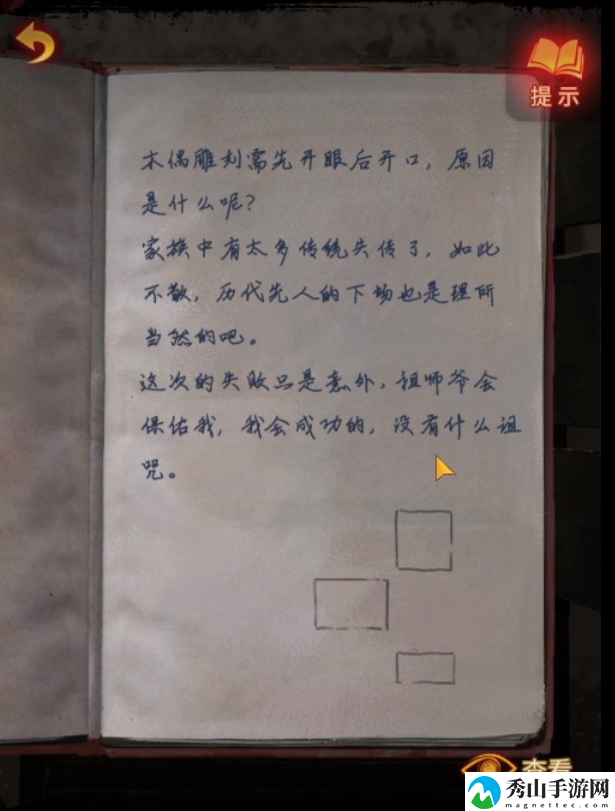 提示
木偶雕刻需先开眼后开口，原因
是什么呢？
家族中有太多传统失传了，如此
不敬，历代先人的下场也是理所
当然的吧。
这次的失败只是意外，祖师爷会
保佑我，我会成功的，没有什么诅
咒。
查看
秀山手游网
magnettec.com